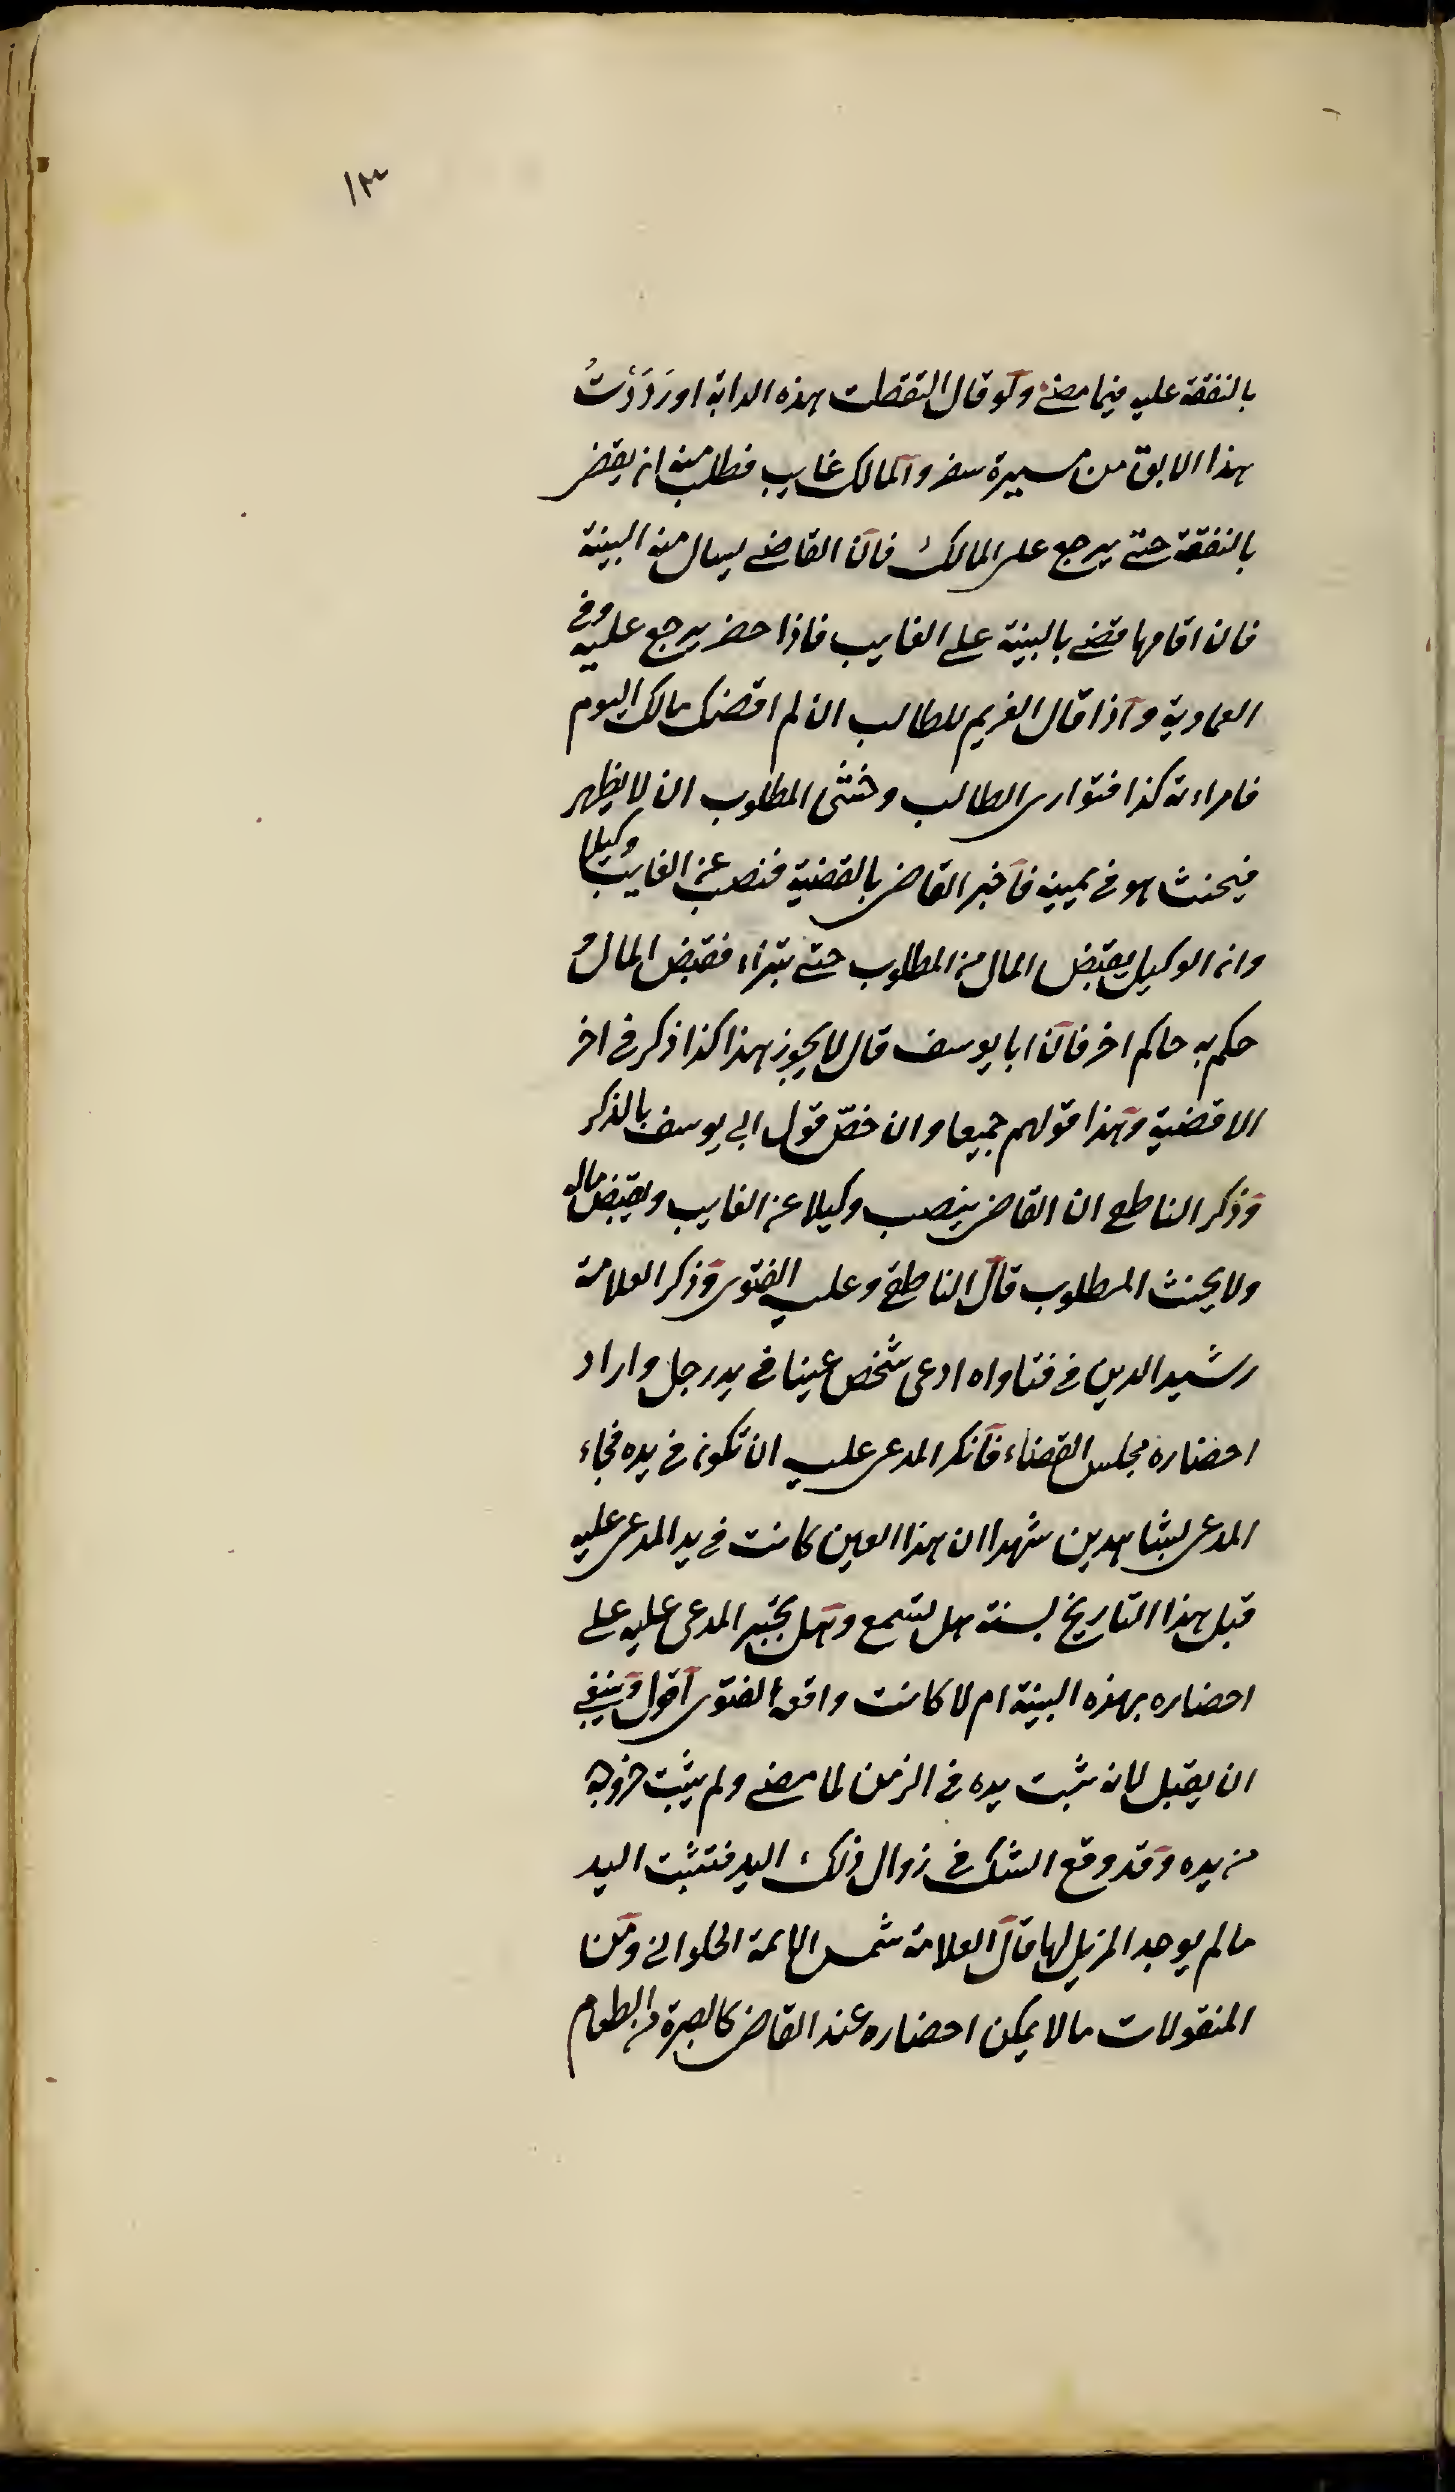 ١٣
بالنفقة عليه فيما مضى ولو قال التقطت هذه الدابة او رَدَدْتُ
هذا الابق من مسيرة سفر والمالك غايب فطلب منه ان يقضى
بالنفقة حتى يرجع على المالك فان القاضى يسال منه البينة
فان اقامها قضى بالبينة على الغايب فاذا حضر يرجع عليه وفى
العمادية واذا قال الغريم للطالب ان لم اقضك مالك اليوم
فامراءته كذا فتوارى الطالب وخشى المطلوب ان لا يظهر
فيحنث هو فى يمينه فاخبر القاضى بالقضية فنصب عن الغايب وكيلا
وان الوكيل يقبض المال من المطلوب حتى يتبراء فقبض المال و
حكم به حاكم اخر فان ابا يوسف قال لا يجوز هذا كذا ذكر فى اخر
الاقضية وهذا قولهم جميعا وان خصّ قول ابى يوسف بالذكر
وذكر الناطفى ان القاضى ينصب وكيلا عن الغايب ويقبض ماله
ولا يحنث المطلوب قال الناطفى وعليه الفتوى وذكر العلامة
رشيد الدين فى فتاواه ادعى شخص عينا فى يد رجل واراد
احضاره مجلس القضاء فانكر المدعى عليه ان تكون فى يده فجاء
المدعى بشاهدين شهدا ان هذا العين كانت فى يد المدعى عليه
قبل هذا التاريخ بسنة هل تسمع وهل يجبر المدعى عليه على
احضاره بهذه البينة ام لا كانت واقعة الفتوى اقول وينبغى
ان يقبل لانه ثبت يده فى الزمن لما مضى ولم يثبت خروجه
من يده وقد وقع الشك فى زوال ذلك اليد فتثبت اليد
ما لم يوجد المزيل لها قال العلامة شمس الائمة الحلوانى ومن
المنقولات ما لا يمكن احضاره عند القاضى كالصبرة من الطعام